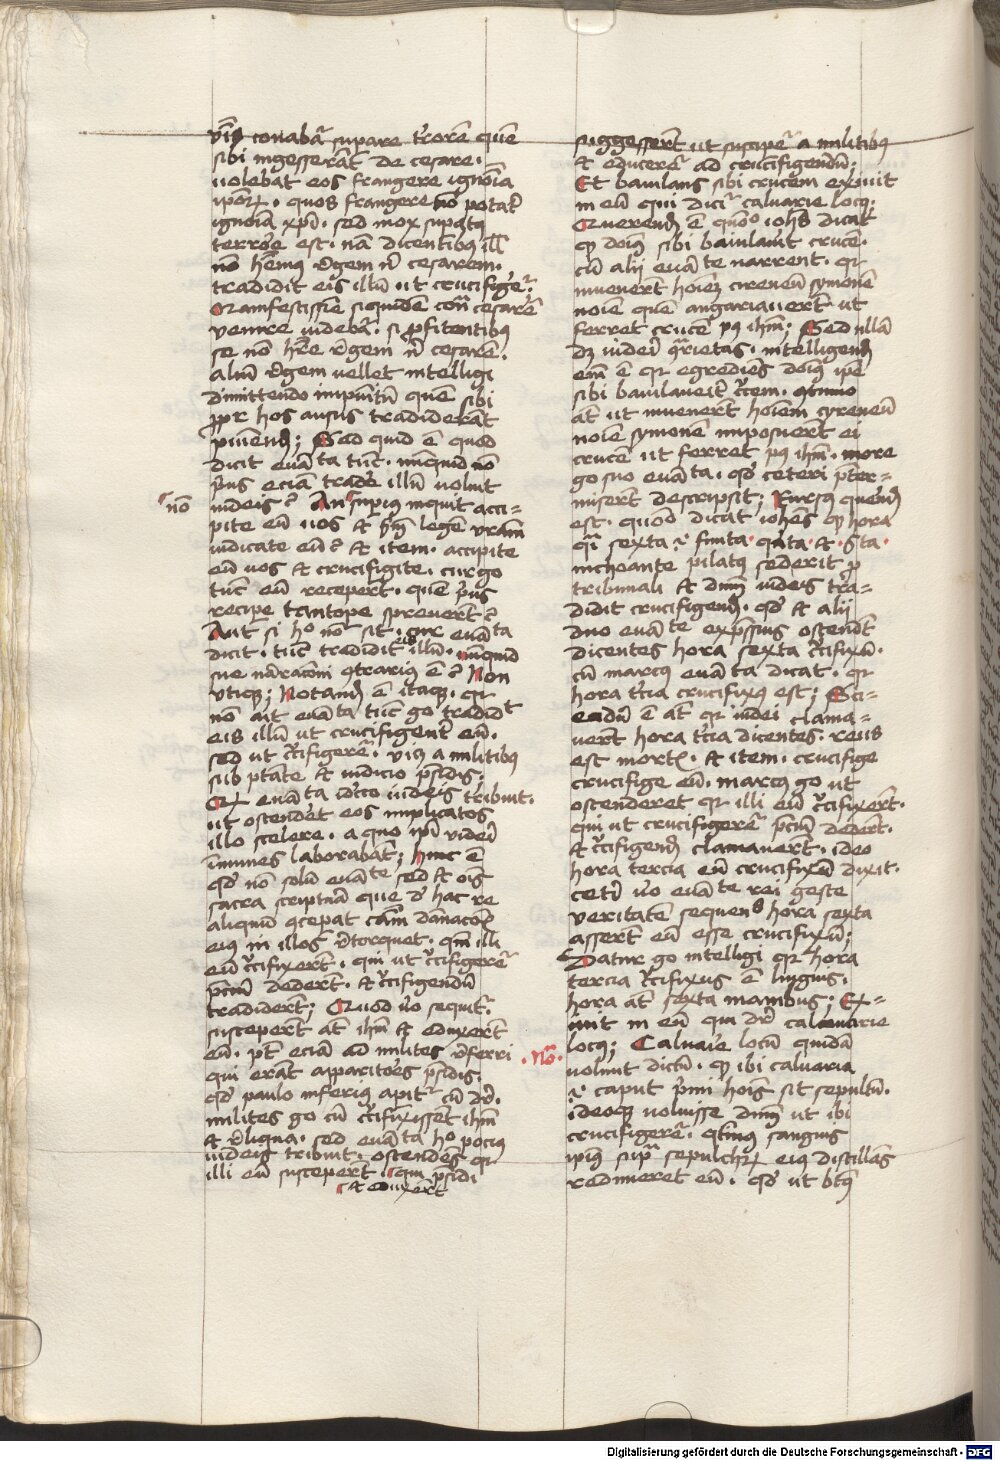 conabat᷑ supare t̕rorē quē
sibi ingesserāt de cesare·
uolebāt eos frangere ignoīa
ip̄oꝝ· quos frangere nō potat᷑
ignoīa xp̄i· sed mox supatꝯ
terrore est· nā dicentibꝯ ill̄
nō hēmꝯ regem n̄ cesarem·
tradidit eis illū ut crucifiget᷑·
Manifestissīe siquidē cont̄ cesarē
venire videbat᷑· si ꝓfitentibꝯ
se nō hr̄e regem n̄ cesarē·
aliū regem uellet intelligi
dimittendo impunitū quē sibi
ꝓpt̕ hos ausus tradiderāt
puniendū; Sed quid ē quod
dicit euāta tūc· nunquid nō
prius eciā tradē illū uoluit
nō
iudeis? An supiꝯ inquit acci=
pite eū uos et scd̄m legē vram̄
iudicate eū? et item· accipite
eū uos et crucifigite· cur go
tūc eū receperūt· quē prius
recipe tantope spreuerūt?
Aut si hoc nō sit· cur euāta
dicit· tūc tradidit eis illū· nunquid
sue narracōni ꝯtrariꝯ ē? Non
vtiqꝫ; Notandū ē itaqꝫ· qr
nō ait euāta tūc go tradidit
eis illū ut crucifigent eū·
sed ut cr̄cifigeret᷑· uiꝫ a militibꝯ
sub ptāte et iudicio p̄sidis·
Qꝛ euāta id̄cco iudeis tribuit·
ut ostendat eos implicatos
illo scelere· a quo ip̄i videri
īmunes laborabāt; hinc ē
qd̕ nō solū euāte sed et oīs
sacra scriptura que de hac re
aliquid ꝯcepat cām dānacōis
eiꝯ in illos retorquet· qm̄ illi
eū cr̄cifixerūt· qui ut cr̄cifigeret᷑
preciū dederūt· et cr̄cifigendū
tradiderūt; Quod uero sequit᷑·
susceperūt at̄ ihm̄ et eduxerūt
eū· pt̄ eciā ad milites referri
qui erāt apparitores p̄sidis·
qd̕ paulo inferiꝯ apit᷑ cū dr̄·
milites go cū cr̄cifixisset ihm̄
et reliqua· sed euāta hoc pociꝯ
iudeis tribuit· ostendēs qr
illi eū susceperūt· qui p̄sidi
et eduxerūt
suggesserūt ut suscipet᷑ a militibꝯ
et educeret᷑ ad crucifigendū;
Et baiulans sibi crucem exiuit
in eū qui dicit᷑ caluarie locꝯ·
Querendū ē quō iohs̄ dicat
qꝫ domꝯ sibi baiulauit crucē·
cū alij euāte narrent· qr
inuenert hoiem cireneū symonē
noīe quē angariauerūt ut
ferret crucē pꝯ ihm̄; Sed nulla
ē in dictis varietas· intelligendū
enī ē qr egrediēs domꝯ ip̄e
sibi baiulauit cr̄cem· quomō
at̄ ut inuenerūt hoīem cyreneū
noīe symonē imposuerūt ei
crucē ut ferret pꝯ ihm̄· more
go suo euāta· qd̕ ceteri preter=
miserūt descripsit; Rursꝯ querendū
est· quod dicat iohēs qꝫ hora
qi sexta i· finita qinta et sexta
inchoante pilatꝯ sederit ꝓ
tribunali et dnm̄ iudeis tra=
didit crucifigendū· qd̕ et alij
duo euāte expressius ostendūt
dicentes hora sexta cr̄cifixū·
cū marcꝯ euāta dicat· qr
hora t̕cia crucifixꝯ est; Sci=
endū ē at̄ qr iudei clama=
uerūt hora t̕cia dicentes· reus
est mortis· et item· crucifige
crucifige eū· marcꝯ go ut
ostenderet qr illi eū cr̄cifixerūt·
qui ut crucifigeret᷑ preciū dederūt·
et cr̄cifigendū clamauerūt· ideo
hora tercia eū crucifixū dixit·
ceteri uero euāte rei geste
veritatē sequentes hora sexta
asserūt eū esse crucifixū;
Datur go intelligi qr hora
tercia cr̄cifixus ē linguis·
hora at̄ sexta manibus; Ex=
iuit in eū qui dr̄ caluarie
No·
locꝯ; Caluarie locū quidā
uolunt dictū· qꝫ ibi caluaria
i· caput primi hoīs sit sepultū·
ideoqꝫ uoluisse dnm̄ ut ibi
crucifigeret᷑· q̄tinꝯ sanguis
ipiꝯ sup̄ sepulchrꝫ eiꝯ distillās
redimeret eū· qd̕ ut btꝯ
Digitalisierung gefördert durch die Deutsche Forschungsgemeinschaft - DFG